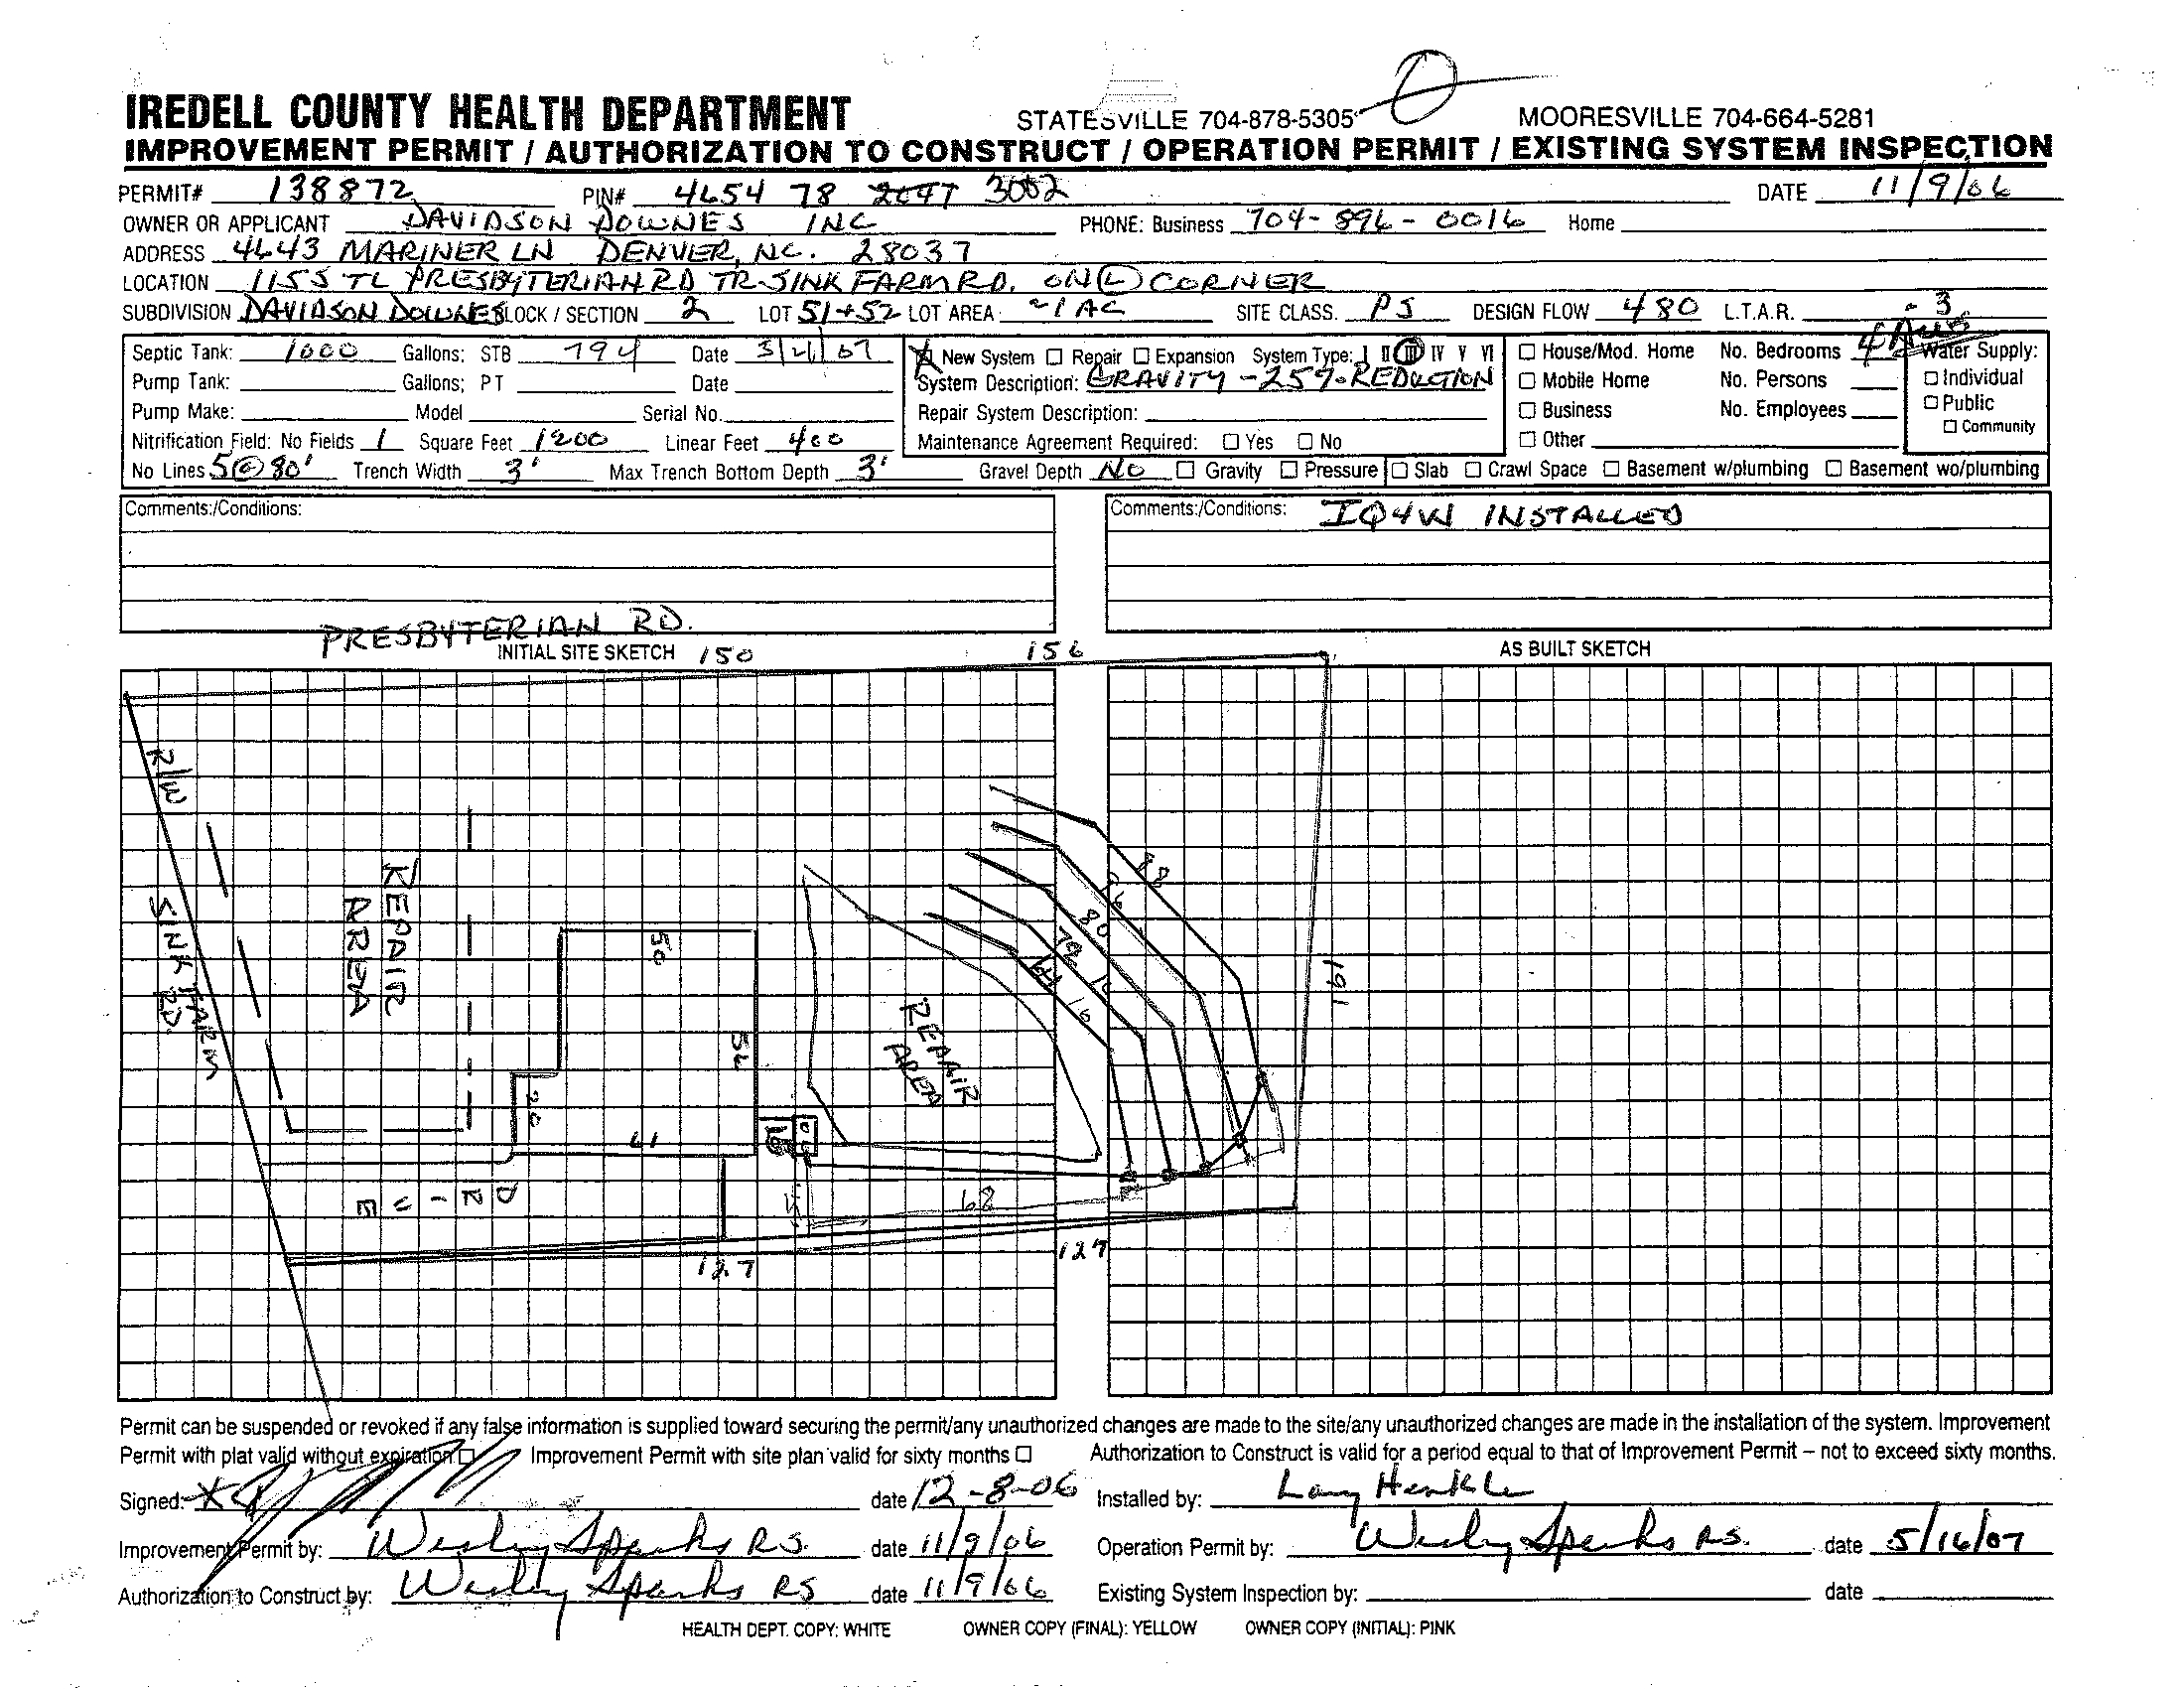 IREDELL COUNTY HEALTH DEPARTMENT STATESVILLE 704-878-5305 MOORESVILLE 704-664-5281
IMPROVEMENT PERMIT / AUTHORIZATION TO CONSTRUCT / OPERATION PERMIT / EXISTING SYSTEM INSPECTION
PERMIT# 138872 PIN# 4654 78 3002 DATE 11/9/06
OWNER OR APPLICANT DAVIDSON DOWNES INC PHONE: Business 704-896-0016 Home
ADDRESS 4643 MARINER LN DENVER, NC. 28037
LOCATION 115S TL PRESBYTERIAN RD TR SINK FARM RD. ON (L) CORNER
SUBDIVISION DAVIDSON DOWNES BLOCK / SECTION 2 LOT 51+52 LOT AREA ~1 AC SITE CLASS. PS DESIGN FLOW 480 L.T.A.R. .3
Septic Tank: 1000 Gallons; STB 794 Date 3/21/07 New System Repair Expansion System Type: I II III IV V VI House/Mod. Home No. Bedrooms 4 Water Supply:
Pump Tank: Gallons; PT Date System Description: GRAVITY - 25% REDUCTION Mobile Home No. Persons Individual
Pump Make: Model Serial No. Repair System Description: Business No. Employees Public
Nitrification Field: No Fields 1 Square Feet 1200 Linear Feet 400 Maintenance Agreement Required: Yes No Other Community
No Lines 5@80' Trench Width 3' Max Trench Bottom Depth 3' Gravel Depth NO Gravity Pressure Slab Crawl Space Basement w/plumbing Basement wo/plumbing
Comments:/Conditions: Comments:/Conditions: IQ4W INSTALLED
PRESBYTERIAN RD.
INITIAL SITE SKETCH 150 156 AS BUILT SKETCH
R/W
SINK FARM RD.
REPAIR AREA
50
56
20
61
REPAIR AREA
88
80
72
191
DRIVE
68
127
127
Permit can be suspended or revoked if any false information is supplied toward securing the permit/any unauthorized changes are made to the site/any unauthorized changes are made in the installation of the system. Improvement
Permit with plat valid without expiration Improvement Permit with site plan valid for sixty months Authorization to Construct is valid for a period equal to that of Improvement Permit – not to exceed sixty months.
Signed: X date 12-8-06 Installed by: Larry Henkle
Improvement Permit by: Wesley Sparks RS. date 11/9/06 Operation Permit by: Wesley Sparks RS. date 5/16/07
Authorization to Construct by: Wesley Sparks RS date 11/9/06 Existing System Inspection by: date
HEALTH DEPT. COPY: WHITE OWNER COPY (FINAL): YELLOW OWNER COPY (INITIAL): PINK